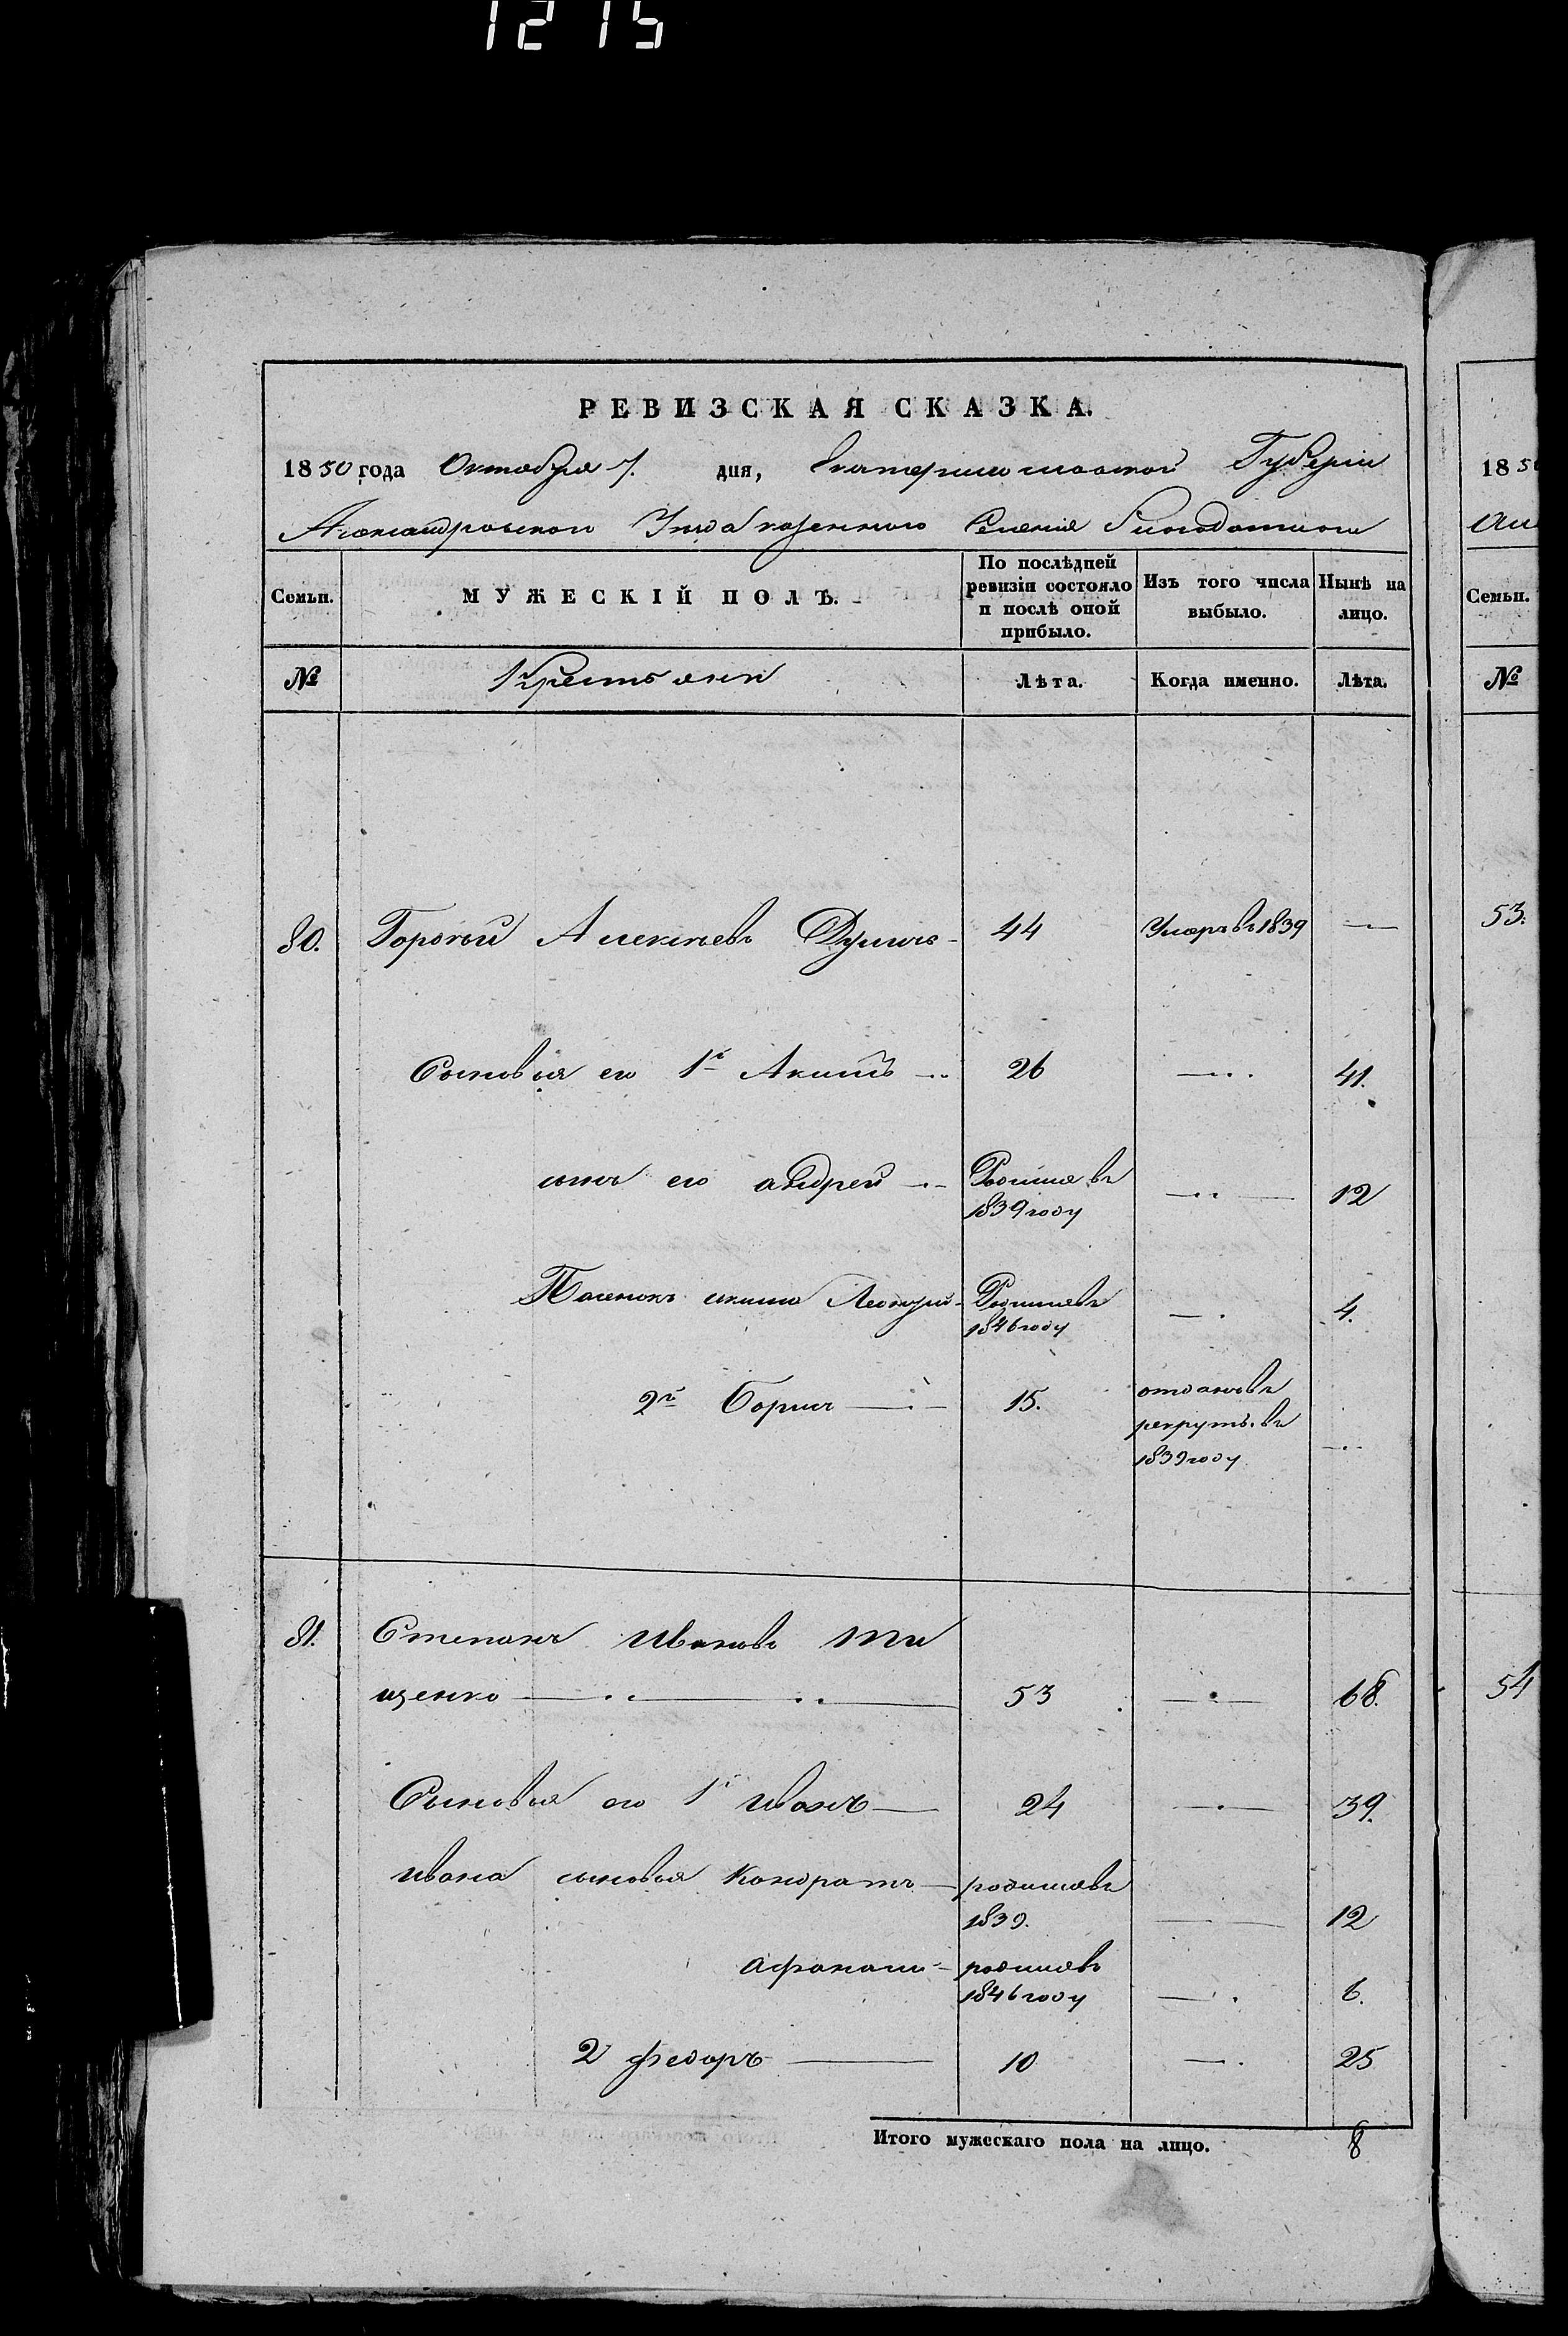 1215
РЕВИЗСКАЯ СКАЗКА.
1850 года Октября 7. дня, Екатеринославской Губерніи
Александровскаго Уѣзда казеннаго Селенія Благодатнаго
Семьи. МУЖЕСКІЙ ПОЛЪ. По послѣдней ревизіи состояло и послѣ оной прибыло. Изъ того числа выбыло. Нынѣ на лицо.
№ Крестьяне Лѣта. Когда именно. Лѣта.
80. Алексѣевъ 44 Умеръ въ 1839 —
Сыновья его 1й Акимъ 26 — 41.
сынъ его андрей Родился въ 1839 году — 12
Пасенокъ акима Родился въ 1846 году — 4.
2й Борисъ 15. отданъ въ рекруты въ 1839 году —
81. Степанъ Ивановъ Ти
щенко 53 — 68.
Сыновья его 1й иванъ 24 — 39.
ивана сыновья Кондратъ родился въ 1839. — 12
афанаси родился въ 1846 году — 6.
2 федоръ 10 — 25
Итого мужескаго пола на лицо. 8
1850
Семьи.
№
53.
54